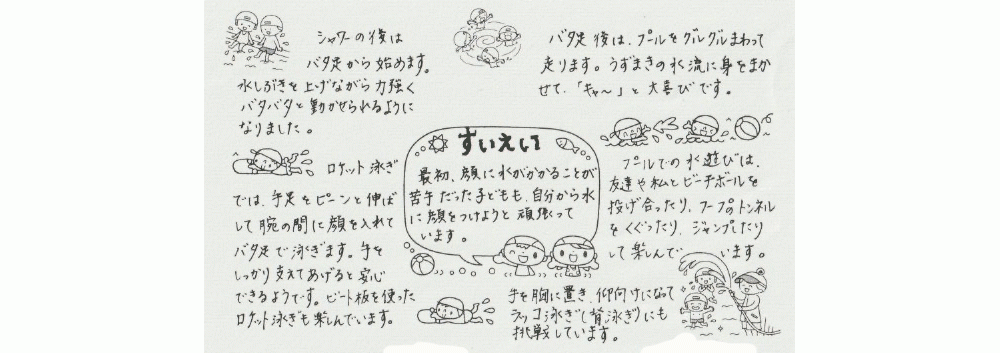 シャワーの後は
バタ足から始めます。
水しぶきを上げながら力強く
バタバタと動かせられるように
なりました。
バタ足後は、プールをグルグルまわって
走ります。うずまきの水流に身をまか
せて、「キャ〜」と大喜びです。
すいえい
最初、顔に水がかかることが
苦手だった子どもも、自分から水
に顔をつけようと頑張って
います。
ロケット泳ぎ
では、手足をピーンと伸ば
して腕の間に顔を入れて
バタ足で泳ぎます。手を
しっかり支えてあげると安心
できるようです。ビート板を使った
ロケット泳ぎも楽しんでいます。
プールでの水遊びは、
友達や私とビーチボールを
投げ合ったり、フープのトンネル
をくぐったり、ジャンプしたり
して楽しんでいます。
手を胸に置き、仰向けになって
ラッコ泳ぎ(背泳ぎ)にも
挑戦しています。